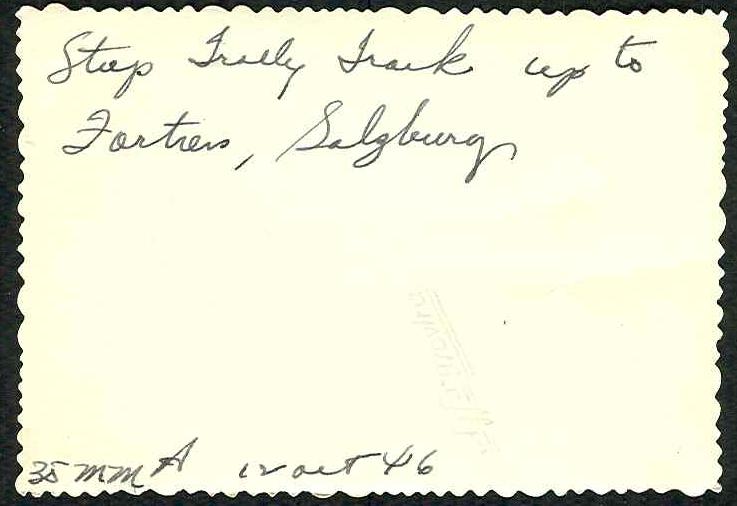 Steep Trolly Track up to
Fortress, Salzburg
35 mm A 12 Oct 46